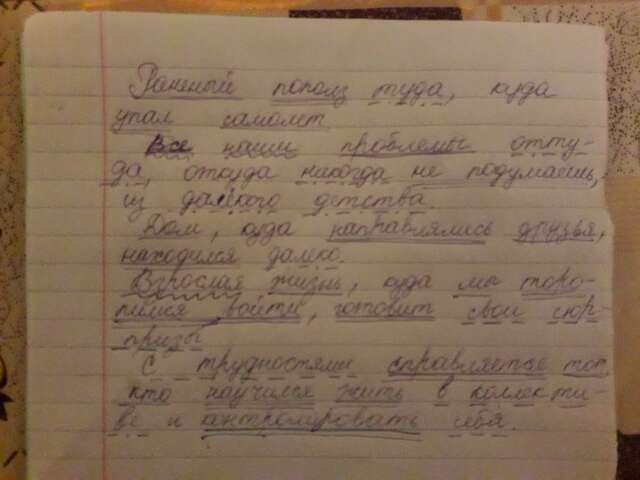 Раненый пополз туда, куда
упал самолет.
Все наши проблемы отту-
да, откуда никогда не подумаешь,
из далёкого детства.
Дом, куда направлялись друзья,
находился далеко.
Взрослая жизнь, куда мы торо-
пимся войти, готовит свои сюр-
призы
С трудностями справляется тот,
кто научился жить в коллекти-
ве и контролировать себя.